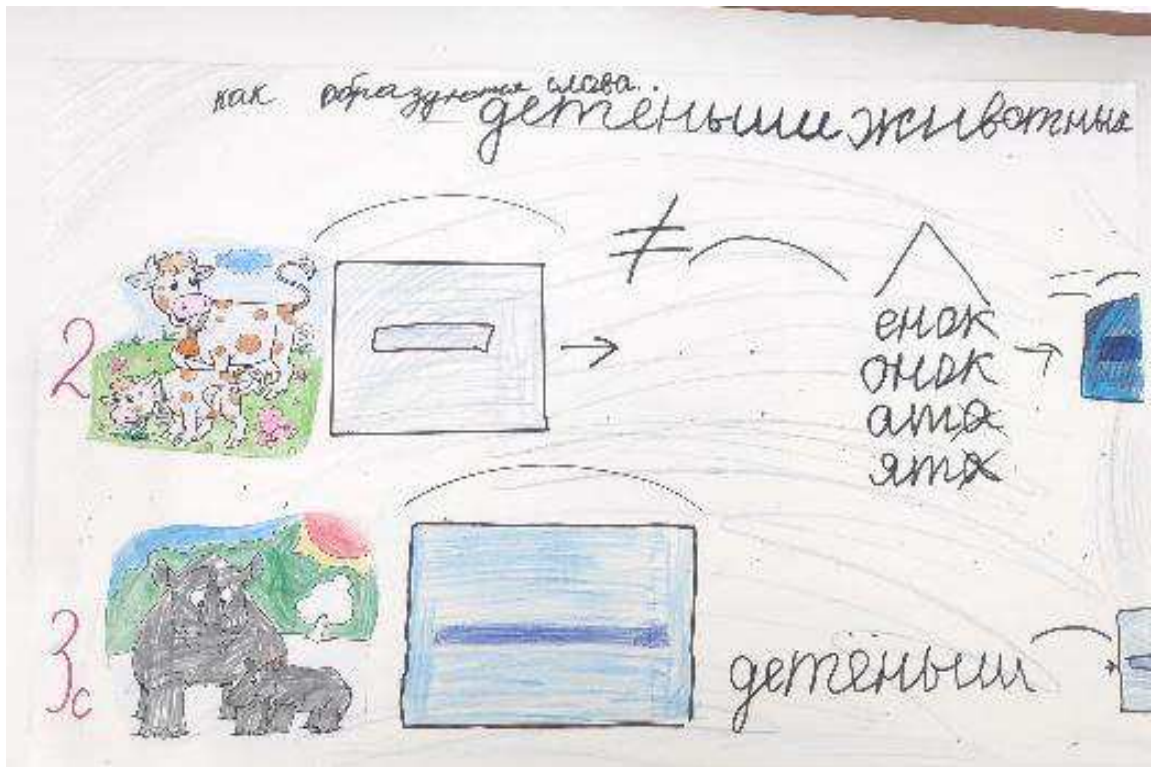 как образуются слова.
детеныши животных
2
≠
енок
онок
ата
ята
3с
детеныш